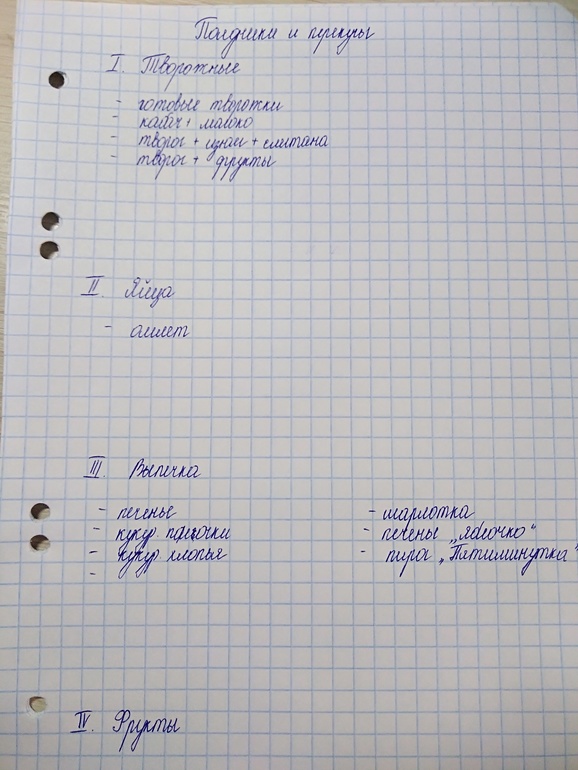 Полдники и перекусы
I. Творожные
- готовые творожки
- калач + молоко
- творог + изюм + сметана
- творог + фрукты
II. Яйца
- омлет
III. Выпечка
- печенье
- кукур. палочки
- кукур хлопья
-
- шарлотка
- печенье „Яблочко“
- пирог „Пятиминутка“
IV. Фрукты